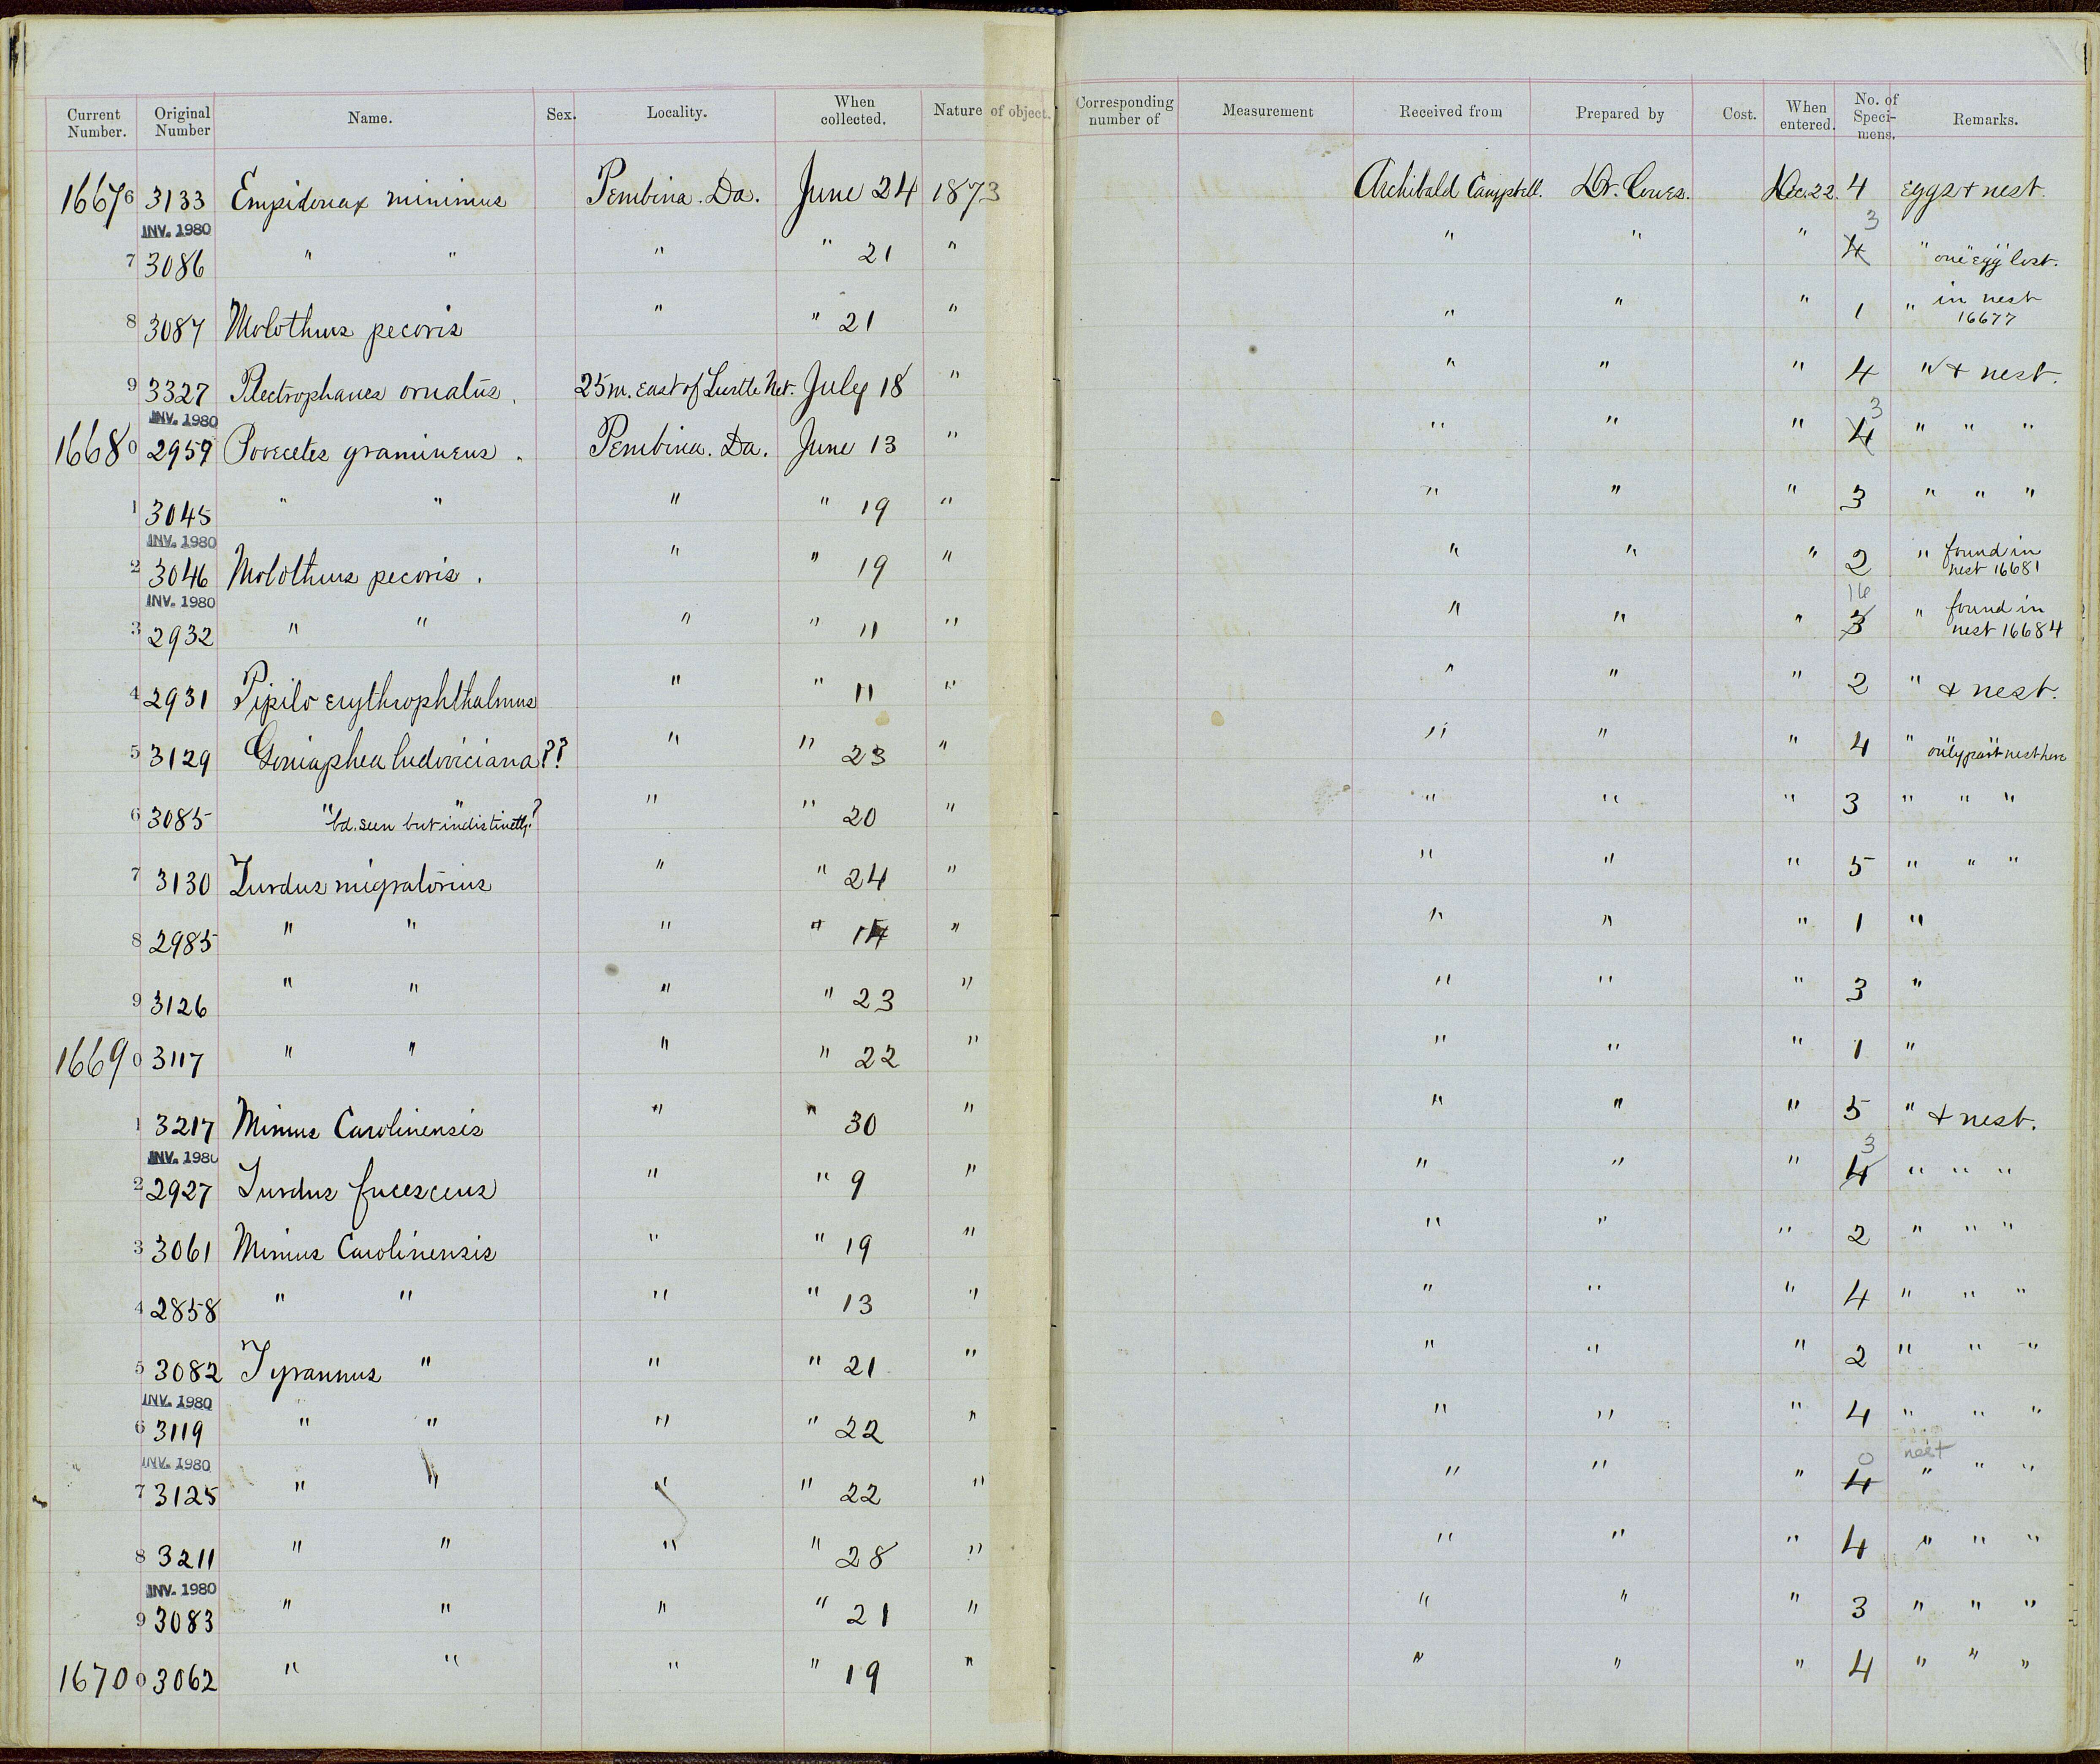 Current Number. Original Number Name. Sex. Locality. When collected. Nature of object. Corresponding number of Measurement Received from Prepared by Cost. When entered. No. of Speci-mens. Remarks.
16676 3133 Empidonax minimus Pembina. Da. June 24 1873 Archibald Campbell. Dr. Coues. Dec. 22. 4 Eggs & nest.
INV. 1980 3
7 3086 " " " " 21 " " " " 4 " one egg lost.
8 3087 Molothrus pecoris " " 21 " " " " 1 " in nest 16677
9 3327 Plectrophanes ornatus. 25m. East of Turtle Mt. July 18 " " " " 4 " & nest.
INV. 1980 3
16680 2959 Poocetes gramineus. Pembina. Da. June 13 " " " " 4 " " "
1 3045 " " " " 19 " " " " 3 " " "
INV. 1980
2 3046 Molothrus pecoris. " " 19 " " " " 2 " found in nest 16681
INV. 1980 16
3 2932 " " " " 11 " " " " 3 " found in nest 16684
4 2931 Pipilo Erythrophthalmus " " 11 " " " " 2 " & nest.
5 3129 Goniaphea ludoviciana?? " " 23 " " " " 4 " only part nest here
6 3085 " bd. seen but indistinctly? " " 20 " " " " 3 " " "
7 3130 Turdus migratorius " " 24 " " " " 5 " " "
8 2985 " " " " 14 " " " " 1 "
9 3126 " " " " 23 " " " " 3 "
16690 3117 " " " " 22 " " " " 1 "
1 3217 Mimus Carolinensis " " 30 " " " " 5 " & nest.
INV. 1980 3
2 2927 Turdus fucescens " " 9 " " " " 4 " " "
3 3061 Mimus Carolinensis " " 19 " " " " 2 " " "
4 2858 " " " " 13 " " " " 4 " " "
5 3082 Tyrannus " " " 21 " " " " 2 " " "
INV. 1980
6 3119 " " " " 22 " " " " 4 " " "
INV. 1980 0 nest
7 3125 " " " " 22 " " " " 4 " " "
8 3211 " " " " 28 " " " " 4 " " "
INV. 1980
9 3083 " " " " 21 " " " " 3 " " "
16700 3062 " " " " 19 " " " " 4 " " "